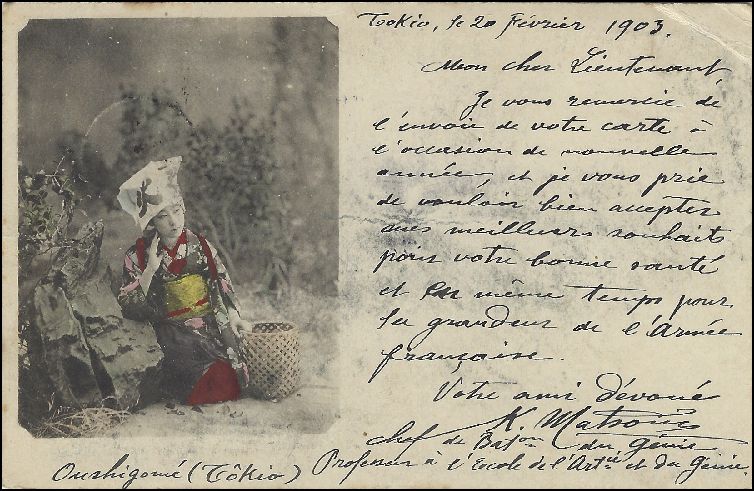 Tokio, le 20 Février 1903.
Mon cher Lieutenant,
Je vous remercie de
l'envoie de votre carte à
l'occasion de nouvelle
année, et je vous prie
de vouloir bien accepter
mes meilleurs souhaits
pour votre bonne santé
et en même temps pour
la grandeur de l'Armée
française.
Votre ami dévoué
K.
chef de Baton du génie
Professeur à l'Ecole de l'Artie et du Génie.
Oushigomé (Tôkio)